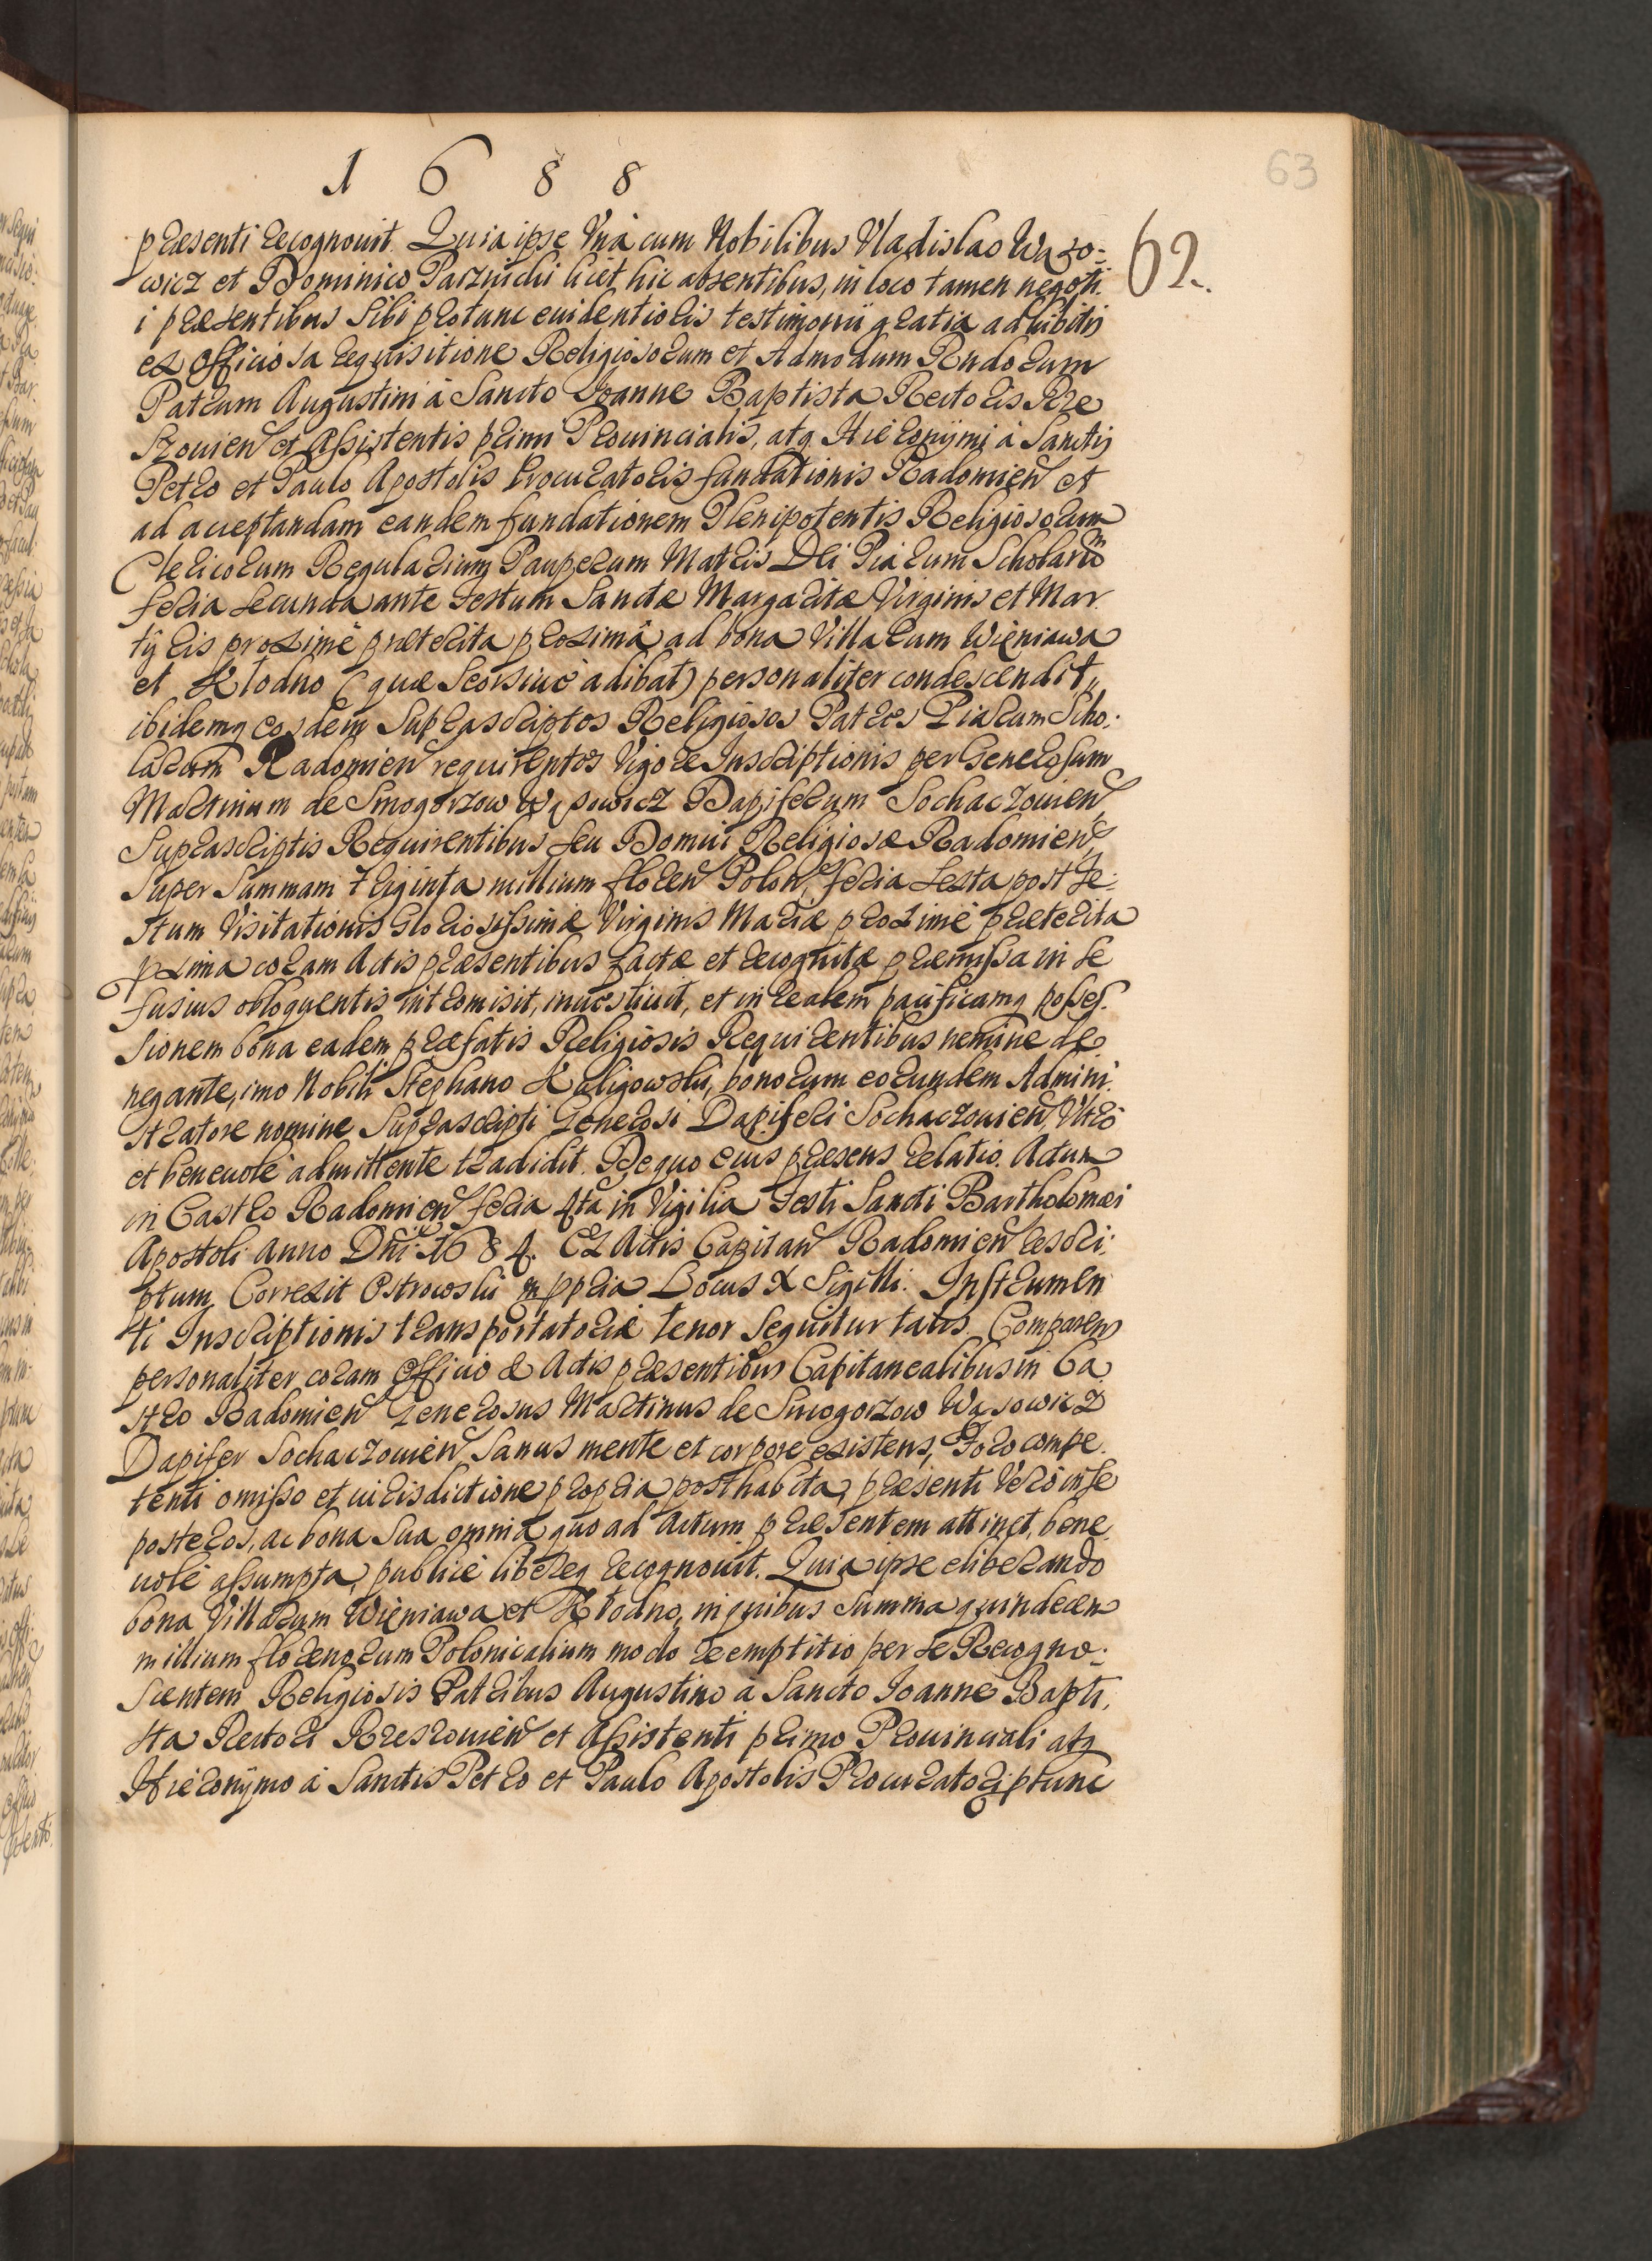 1688
63
62.
præsenti recognouit. Quia ipse Vnà cum Nobilibus Vladislao Wąso:
wicz et Dominico Parznicki licet hic absentibus, in loco tamen negoti
i præsentibus sibi protunc euidentioris testimonii gratia adhibitis
ex officiosa requisitione Religiosorum et Admodum Rndorum
Patrum Augustini à Sancto Joanne Baptista Rectoris Rze
szouien et Assistentis primi Prouincialis, atq Hieronymi à Sanctis
Petro et Paulo Apostolis Procuratoris fundationis Radomien et
ad acceptandam eandem fundationem Plenipotentis Religiosorum
Clericorum Regularium Pauperum Matris Dei Piarum Scholarum
feria secunda ante Festum Sanctæ Margaritæ Virginis et Mar
tyris proximè præterita proximâ ad bona Villarum Wieniawa
et Kłodno (quæ seorsiue adibat) personaliter condescendit,
ibidemq eosdem suprascriptos Religiosos Patres Piarum Scho:
larum Radomien requirentes Vigore Inscriptionis per Generosum
Martinum de Smogorzow Wąsowicz Dapiferum Sochaczouien
suprascriptis Requirentibus seu Domui Religiosæ Radomien
super summam triginta millium floren Polon, feria sexta post Fe:
stum Visitationis Gloriosissimæ Virginis Mariæ proximè præterita
pxima coram Actis præsentibus factæ et recognitæ præmissa in se
fusius obloquentis intromisit, inuestiuit, et in realem pacificamq posses
sionem bona eadem præfatis Religiosis Requirentibus nemine de
negante, imo Nobili Stephano Kuligowski, bonorum eorundem Admini
stratore nomine suprascripti Generosi Dapiferi Sochaczouien, Vltrò
et beneuolè admittente tradidit. De quo eius præsens relatio. Actum
in Castro Radomien feria 4ta in Vigilia Festi Sancti Bartholomæi
Apostoli Anno Dni 1684. Ex Actis Capitan Radomien rescri:
ptum, Correxit Ostrowski mppria Locus X Sigilli. Instrumen
ti Inscriptionis transportatoriæ tenor sequitur talis. Comparens
personaliter coram Officio & Actis præsentibus Capitanealibus in Ca
stro Radomien Generosus Martinus de Smogorzow Wąsowicz
Dapifer Sochaczouien sanus mente et corpore existens, Foro compe
tenti omisso et iurisdictione propria posthabita, præsenti Verò in se
posteros, ac bona sua omnia quo ad Actum præsentem attinet, bene
uolè assumpta, publicè libereq recognouit. Quia ipse eliberando
bona Villarum Wieniawa et Kłodno, in quibus summa quindecem
millium florenorum Polonicalium modo reemptitio per se Recogno:
scentem Religiosis Patribus Augustino à Sancto Joanne Bapti
sta Rectori Rzeszouien et Assistenti primo Prouinciali atq
Hieronymo à Sanctis Petro et Paulo Apostolis Procuratori ptunc